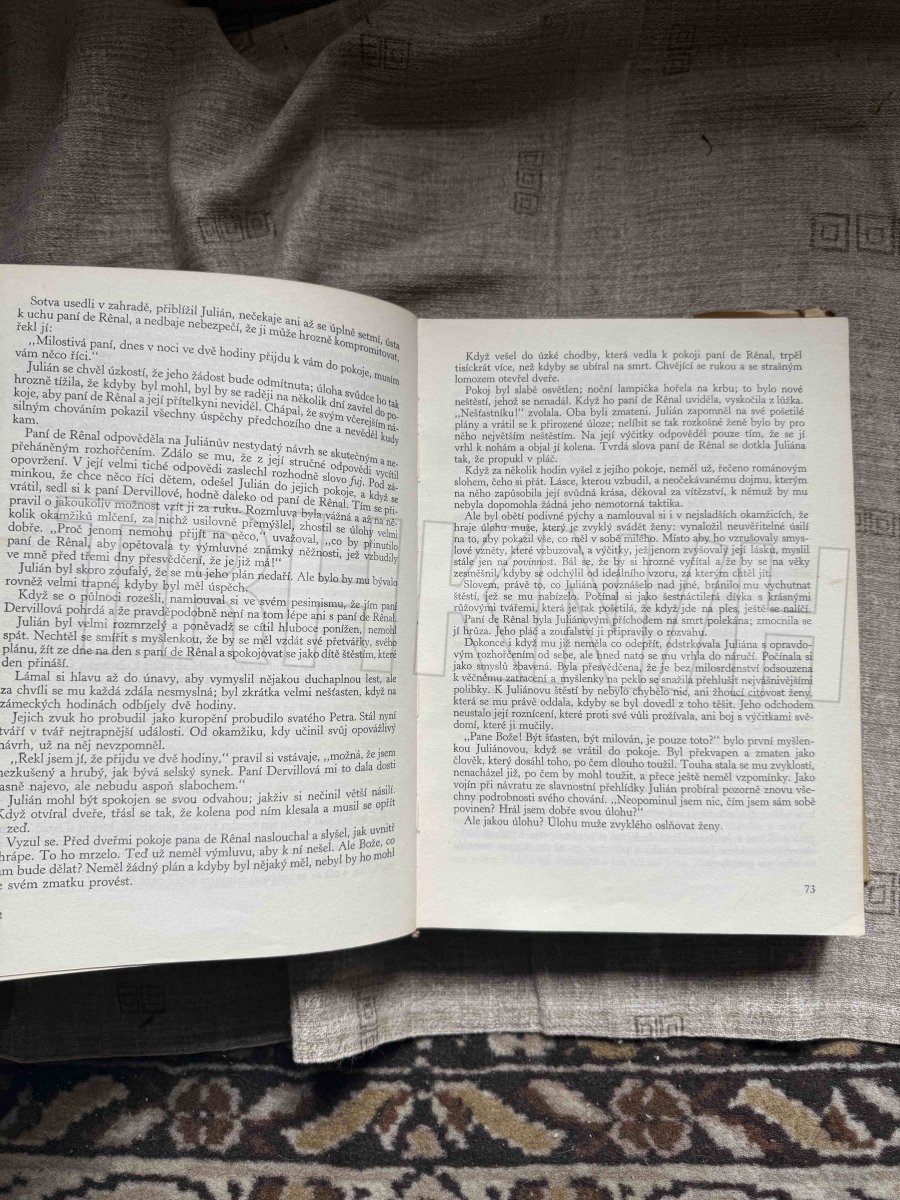 Sotva usedli v zahradě, přiblížil Julián, nečekaje ani až se úplně setmí, ústa
k uchu paní de Rênal, a nedbaje nebezpečí, že ji může hrozně kompromitovat,
řekl jí:
,,Milostivá paní, dnes v noci ve dvě hodiny přijdu k vám do pokoje, musím
vám něco říci."
Julián se chvěl úzkostí, že jeho žádost bude odmítnuta; úloha svůdce ho tak
hrozně tížila, že kdyby byl mohl, byl by se raději na několik dní zavřel do po-
koje, aby paní de Rênal a její přítelkyni neviděl. Chápal, že svým včerejším ná-
silným chováním pokazil všechny úspěchy předchozího dne a nevěděl kudy
kam.
Paní de Rênal odpověděla na Juliánův nestydatý návrh se skutečným a ne-
přeháněným rozhořčením. Zdálo se mu, že z její stručné odpovědi vycítil
opovržení. V její velmi tiché odpovědi zaslechl rozhodně slovo fuj. Pod zá-
minkou, že chce něco říci dětem, odešel Julián do jejich pokoje, a když se
vrátil, sedl si k paní Dervillové, hodně daleko od paní de Rênal. Tím se při-
pravil o jakoukoliv možnost vzít ji za ruku. Rozmluva byla vážná a až na ně-
kolik okamžiků mlčení, za nichž usilovně přemýšlel, zhostil se úlohy velmi
dobře. ,,Proč jenom nemohu přijít na něco," uvažoval, ,,co by přinutilo
paní de Rênal, aby opětovala ty výmluvné známky něžnosti, jež vzbudily
ve mně před třemi dny přesvědčení, že je již má!"
Julián byl skoro zoufalý, že se mu jeho plán nedaří. Ale bylo by mu bývalo
rovněž velmi trapné, kdyby byl měl úspěch.
Když se o půlnoci rozešli, namlouval si ve svém pesimismu, že jím paní
Dervillová pohrdá a že pravděpodobně není na tom lépe ani s paní de Rênal.
Julián byl velmi rozmrzelý a poněvadž se cítil hluboce ponížen, nemohl
spát. Nechtěl se smířit s myšlenkou, že by se měl vzdát své přetvářky, svého
plánu, žít ze dne na den s paní de Rênal a spokojovat se jako dítě štěstím, které
den přináší.
Lámal si hlavu až do únavy, aby vymyslil nějakou duchaplnou lest, ale
za chvíli se mu každá zdála nesmyslná; byl zkrátka velmi nešťasten, když na
zámeckých hodinách odbíjely dvě hodiny.
Jejich zvuk ho probudil jako kuropění probudilo svatého Petra. Stál nyní
tváří v tvář nejtrapnější události. Od okamžiku, kdy učinil svůj opovážlivý
návrh, už na něj nevzpomněl.
,,Rekl jsem jí, že přijdu ve dvě hodiny," pravil si vstávaje, ,,možná, že jsem
nezkušený a hrubý, jak bývá selský synek. Paní Dervillová mi to dala dosti
jasně najevo, ale nebudu aspoň slabochem."
Julián mohl být spokojen se svou odvahou; jakživ si nečinil větší násilí.
Když otvíral dveře, třásl se tak, že kolena pod ním klesala a musil se opřít
zeď.
Vyzul se. Před dveřmi pokoje pana de Rênal naslouchal a slyšel, jak uvnitř
hrápe. To ho mrzelo. Teď už neměl výmluvu, aby k ní nešel. Ale Bože, co
am bude dělat? Neměl žádný plán a kdyby byl nějaký měl, nebyl by ho mohl
e svém zmatku provést.
2
Když vešel do úzké chodby, která vedla k pokoji paní de Rênal, trpěl
tisíckrát více, než kdyby se ubíral na smrt. Chvějící se rukou a se strašným
lomozem otevřel dveře.
Pokoj byl slabě osvětlen; noční lampička hořela na krbu; to bylo nové
neštěstí, jehož se nenadál. Když ho paní de Rênal uviděla, vyskočila z lůžka.
,,Nešťastníku!" zvolala. Oba byli zmateni. Julián zapomněl na své pošetilé
plány a vrátil se k přirozené úloze; nelíbit se tak rozkošné ženě bylo by pro
něho největším neštěstím. Na její výčitky odpověděl pouze tím, že se jí
vrhl k nohám a objal jí kolena. Tvrdá slova paní de Rênal se dotkla Juliána
tak, že propukl v pláč.
Když za několik hodin vyšel z jejího pokoje, neměl už, řečeno románovým
slohem, čeho si přát. Lásce, kterou vzbudil, a neočekávanému dojmu, kterým
na něho zapůsobila její svůdná krása, děkoval za vítězství, k němuž by mu
nebyla dopomohla žádná jeho nemotorná taktika.
Ale byl obětí podivné pýchy a namlouval si i v nejsladších okamžicích, že
hraje úlohu muže, který je zvyklý svádět ženy: vynaložil neuvěřitelné úsilí
na to, aby pokazil vše, co měl v sobě milého. Místo aby ho vzrušovaly smys-
lové vzněty, které vzbuzoval, a výčitky, jež jenom zvyšovaly její lásku, myslil
stále jen na povinnost. Bál se, že by si hrozně vyčítal a že by se na věky
zesměšnil, kdyby se odchýlil od ideálního vzoru, za kterým chtěl jít.
Slovem, právě to, co Juliána povznášelo nad jiné, bránilo mu vychutnat
štěstí, jež se mu nabízelo. Počínal si jako šestnáctiletá dívka s krásnými
růžovými tvářemi, která je tak pošetilá, že když jde na ples, ještě se nalíčí.
Paní de Rênal byla Juliánovým příchodem na smrt polekána; zmocnila se
jí hrůza. Jeho pláč a zoufalství ji připravily o rozvahu.
Dokonce i když mu již neměla co odepřít, odstrkovala Juliána s opravdo-
vým rozhořčením od sebe, ale hned nato se mu vrhla do náručí. Počínala si
jako smyslů zbavená. Byla přesvědčena, že je bez milosrdenství odsouzena
k věčnému zatracení a myšlenky na peklo se snažila přehlušit nejvášnivějšími
polibky. K Juliánovu štěstí by nebylo chybělo nic, ani žhoucí citovost ženy,
která se mu právě oddala, kdyby se byl dovedl z toho těšit. Jeho odchodem
neustalo její roznícení, které proti své vůli prožívala, ani boj s výčitkami svě-
domí, které ji mučily.
,,Pane Bože! Být šťasten, být milován, je pouze toto?" bylo první myšlen-
kou Juliánovou, když se vrátil do pokoje. Byl překvapen a zmaten jako
člověk, který dosáhl toho, po čem dlouho toužil. Touha stala se mu zvyklostí,
nenacházel již, po čem by mohl toužit, a přece ještě neměl vzpomínky. Jako
vojín při návratu ze slavnostní přehlídky Julián probíral pozorně znovu všech-
ny podrobnosti svého chování. ,,Neopominul jsem nic, čím jsem sám sobě
povinen? Hrál jsem dobře svou úlohu?"
Ale jakou úlohu? Úlohu muže zvyklého oslňovat ženy.
73